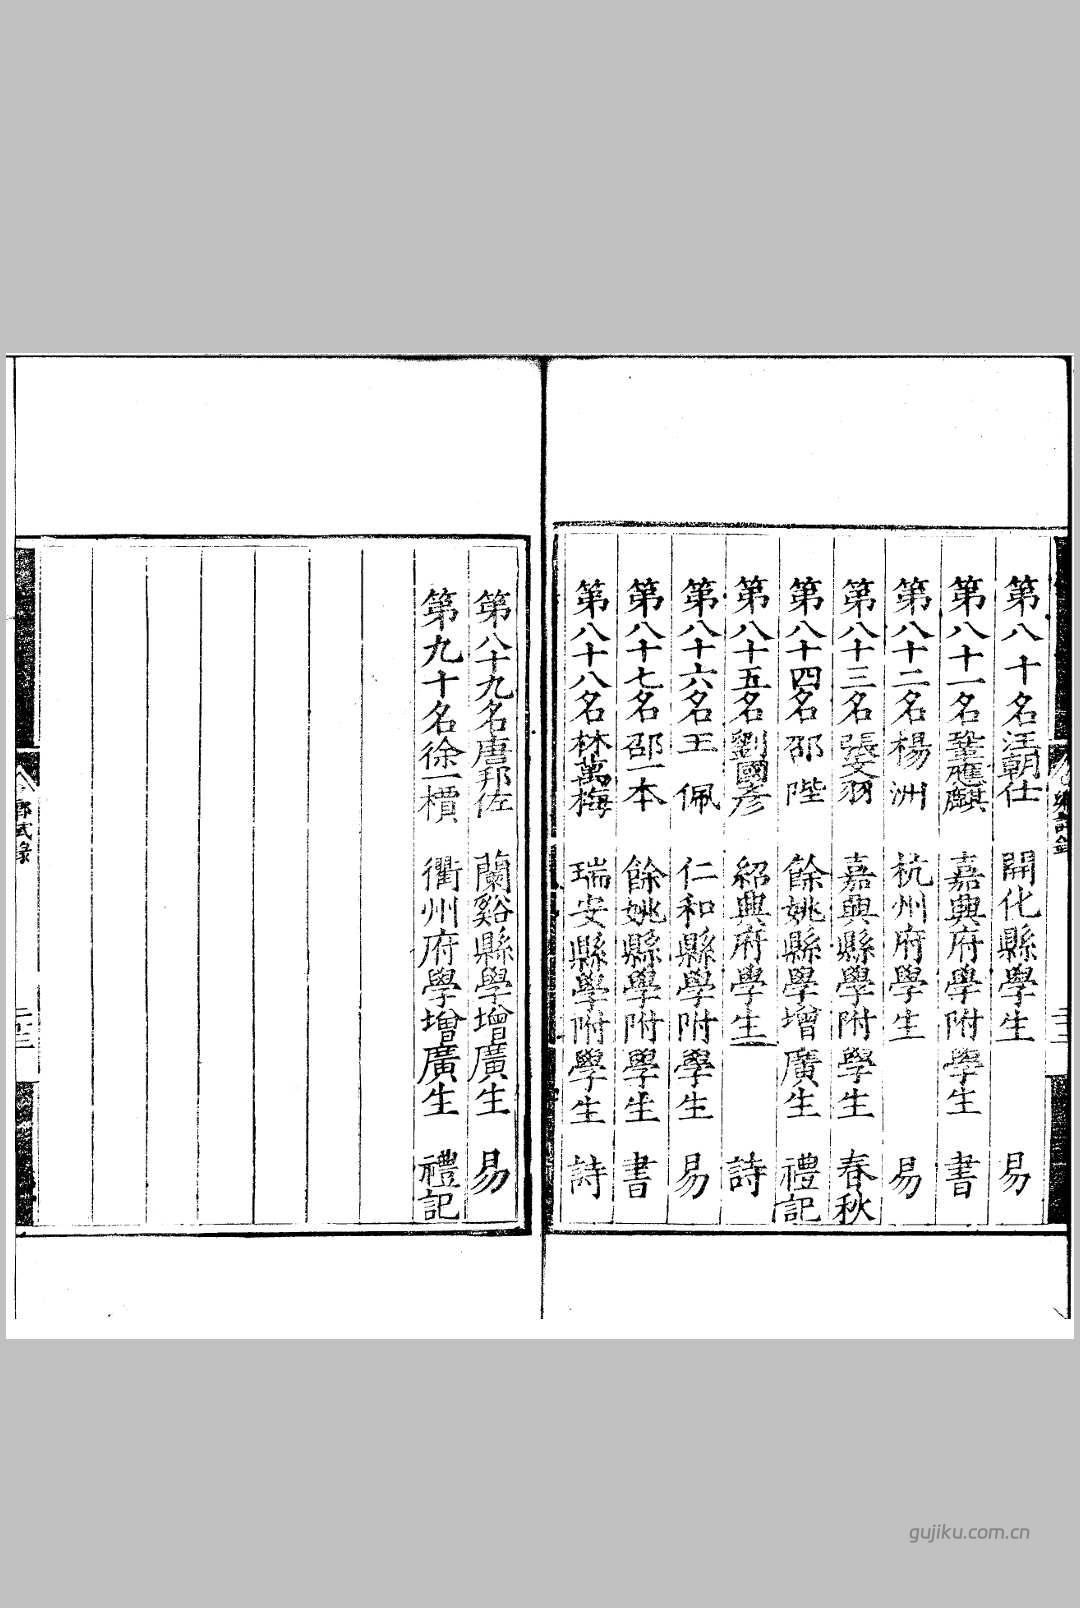 第八十名汪朝仕 開化縣學生 易
第八十一名鞏應麒 嘉興府學附學生 書
第八十二名楊洲 杭州府學生 易
第八十三名張文羽 嘉興縣學附學生 春秋
第八十四名邵陛 餘姚縣學增廣生 禮記
第八十五名劉國彥 紹興府學生 詩
第八十六名王佩 仁和縣學附學生 易
第八十七名邵一本 餘姚縣學附學生 書
第八十八名林萬梅 瑞安縣學附學生 詩
第八十九名唐邦佐 蘭谿縣學增廣生 易
第九十名徐一檟 衢州府學增廣生 禮記
鄉試錄
gujiku.com.cn